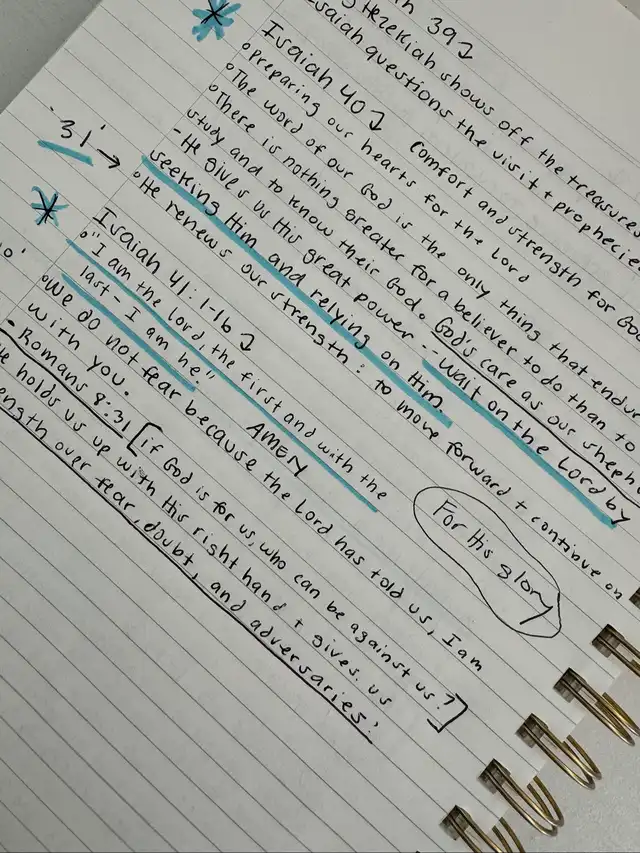 39
Hezekiah shows off the treasures
Isaiah questions the visit + prophecies
Isaiah 40 comfort and strength for God
• preparing our hearts for the Lord
• The word of our God is the only thing that endur
• There is nothing greater for a believer to do than to
study and to know their God. God's care as our sheph
- He gives us His great power -- wait on the Lord by
'31' → seeking Him and relying on Him.
• He renews our strength: to move forward + continue on
For His glory
Isaiah 41:1-16
• "I am the Lord, the first and with the
last - I am he." AMEN
• We do not fear because the Lord has told us, I am
with you.
- Romans 8:31 [if God is for us, who can be against us?]
He holds us up with His right hand + gives us
ength over fear, doubt, and adversaries!